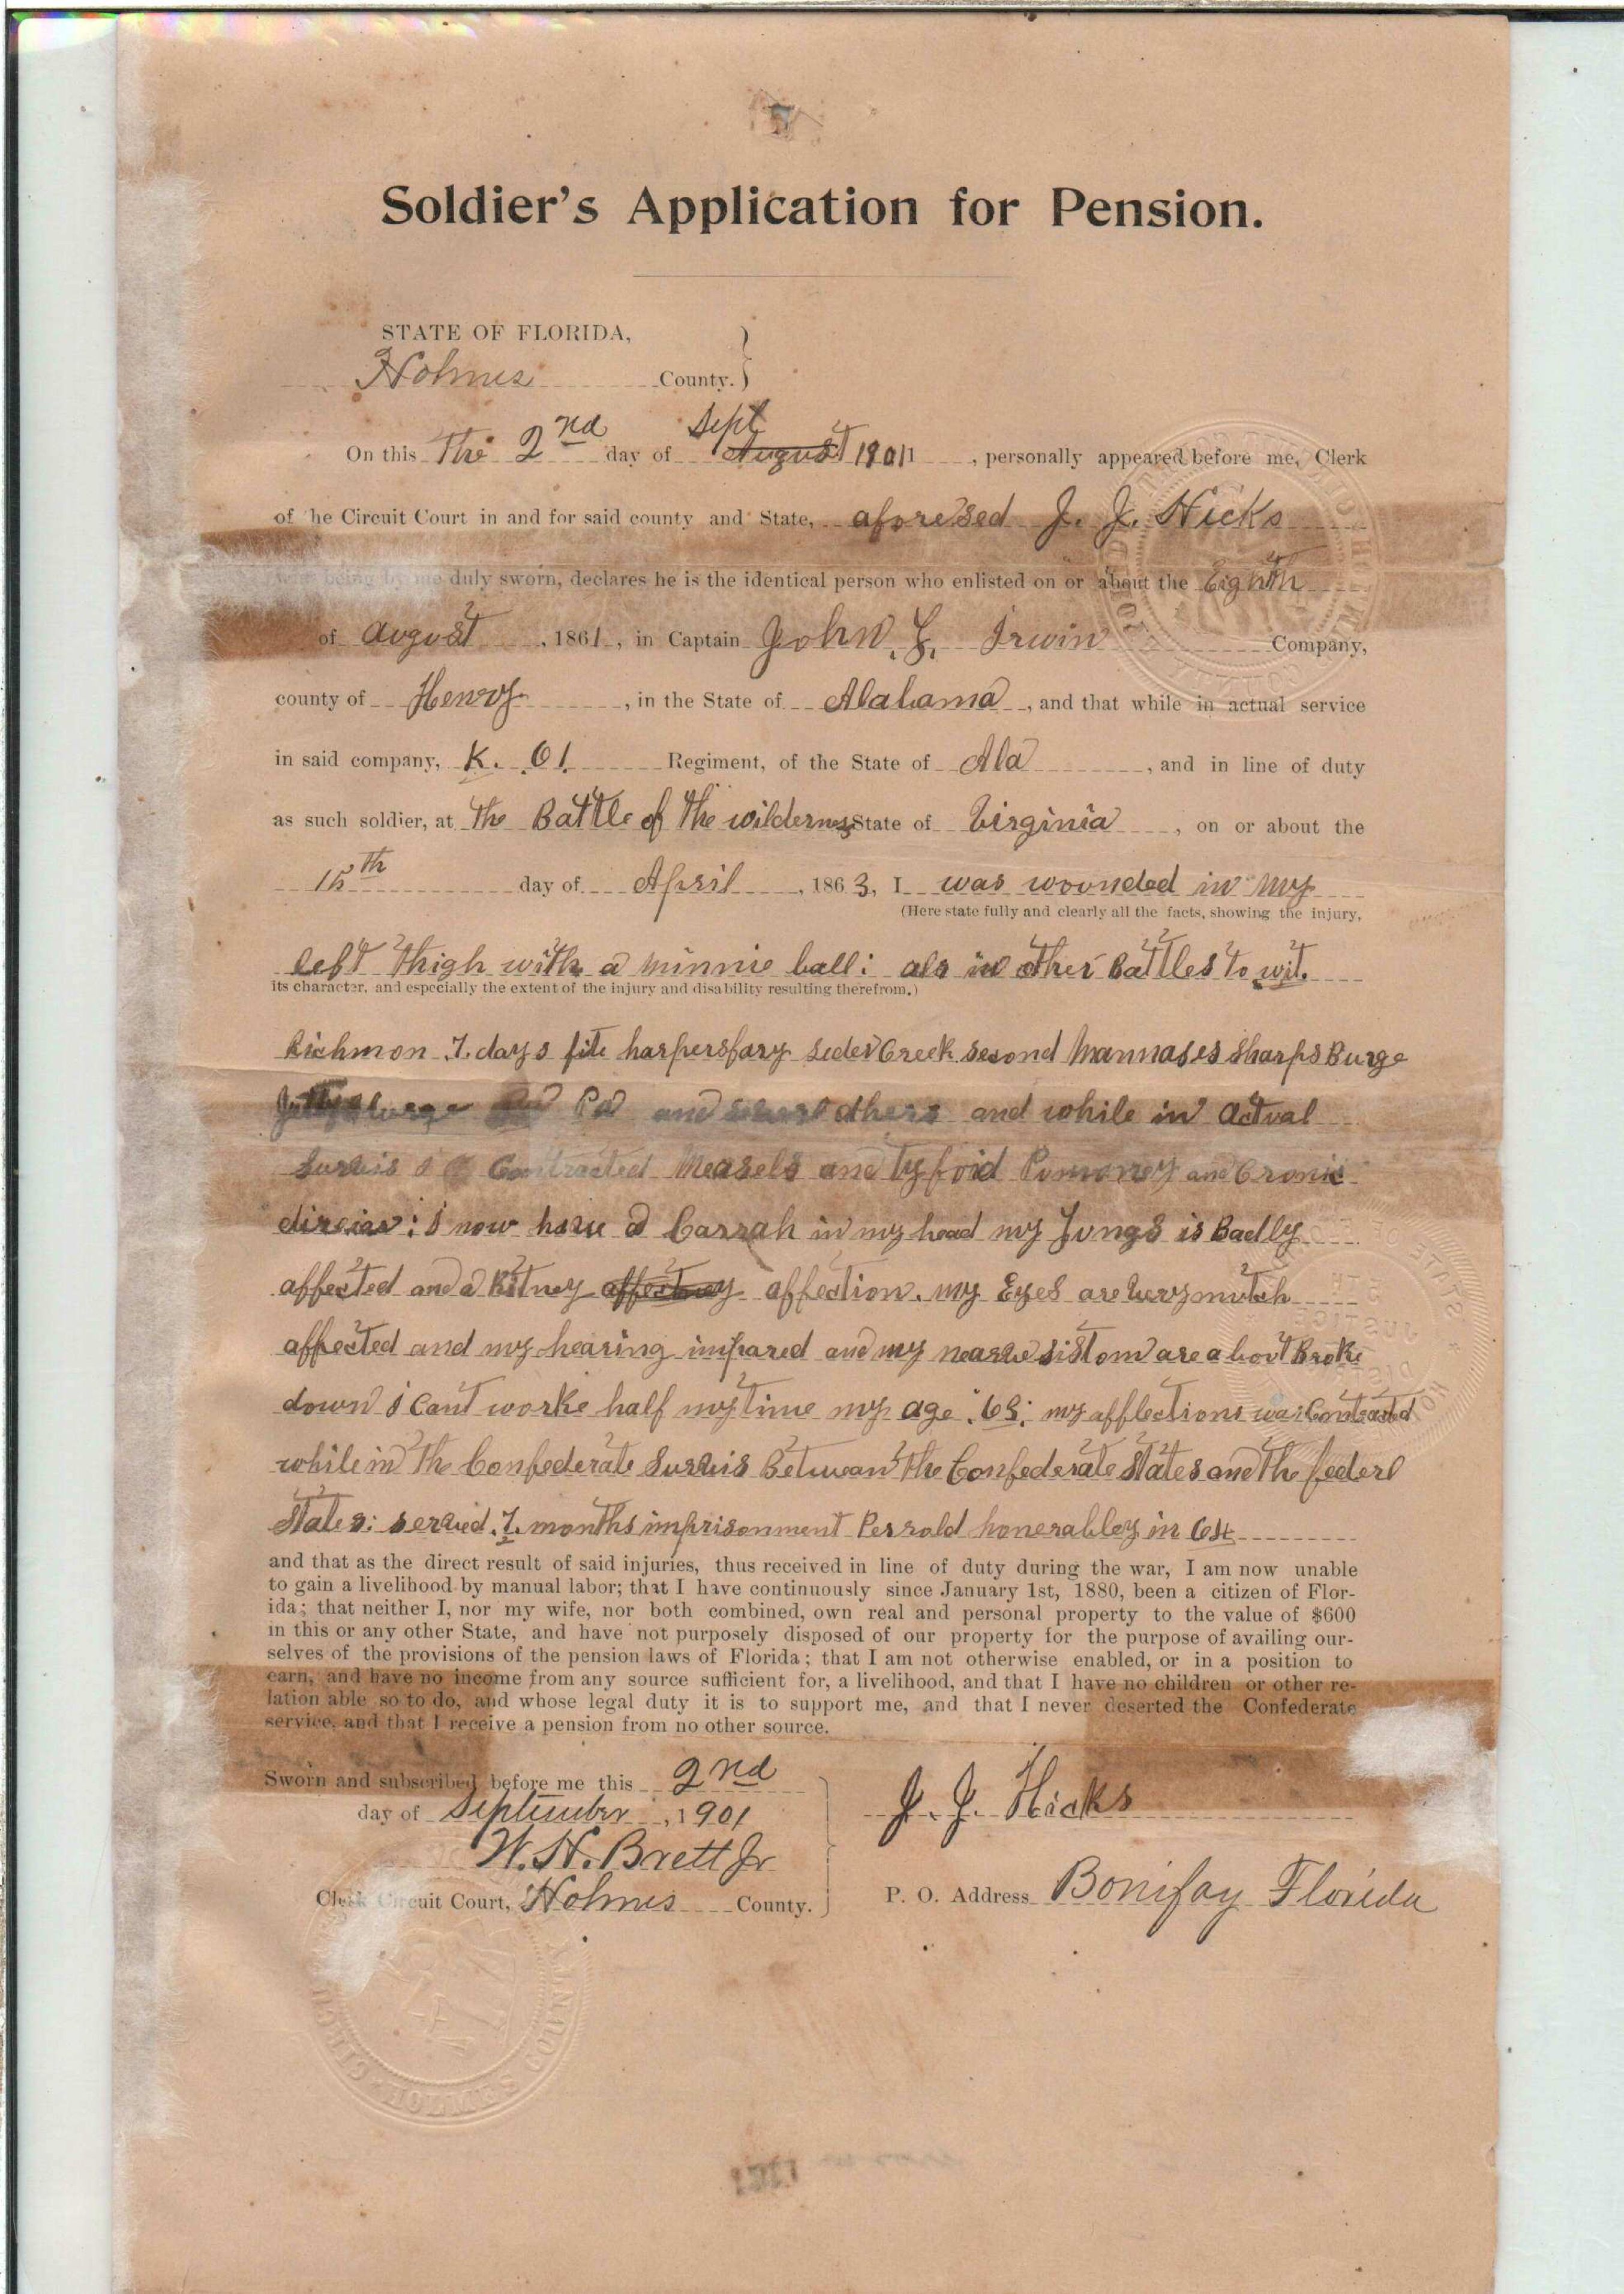 Soldier's Application for Pension.
STATE OF FLORIDA,
Holmes County.
On this The 2nd day of Sept August 1901, personally appeared before me, Clerk
of he Circuit Court in and for said county and State, aforesed J. J. Hicks
being by me duly sworn, declares he is the identical person who enlisted on or about the Eighth
of August, 1861, in Captain John. L. Irwin Company,
county of Henry, in the State of Alabama, and that while in actual service
in said company, K. 61 Regiment, of the State of Ala, and in line of duty
as such soldier, at The Battle of The wilderness State of Virginia, on or about the
15th day of April, 1863, I was wounded in my
(Here state fully and clearly all the facts, showing the injury,
left Thigh with a minnie ball: als in other Battles to wit.
its character, and especially the extent of the injury and disability resulting therefrom.)
Richmon 7. days fite harpersfary seder Creek second Mannases sharps Burge
Pa and others and while in actual
Survis I Contracted Measels and Tyfoid Pumoney and Cronic
: I now have a Carrah in my head my Lungs is Badly
affected and a Kitney affection. my Eyes are very mutch
affected and my hearing impared and my nearve sistom are about Broke
down I cant worke half my time my age : 63 : my afflections was Contracted
while in The Confederate Survis Betwean The Confederate States and The federl
States: served .7. months imprisonment Perrold honerabley in 64
and that as the direct result of said injuries, thus received in line of duty during the war, I am now unable
to gain a livelihood by manual labor; that I have continuously since January 1st, 1880, been a citizen of Flor-
ida; that neither I, nor my wife, nor both combined, own real and personal property to the value of $600
in this or any other State, and have not purposely disposed of our property for the purpose of availing our-
selves of the provisions of the pension laws of Florida; that I am not otherwise enabled, or in a position to
earn, and have no income from any source sufficient for, a livelihood, and that I have no children or other re-
lation able so to do, and whose legal duty it is to support me, and that I never deserted the Confederate
service, and that I receive a pension from no other source.
Sworn and subscribed before me this 2nd
day of September, 1901
W. H. Brett Jr
Clerk Circuit Court, Holmes County.
J. J. Hicks
P. O. Address Bonifay Florida
HOLMES COUNTY